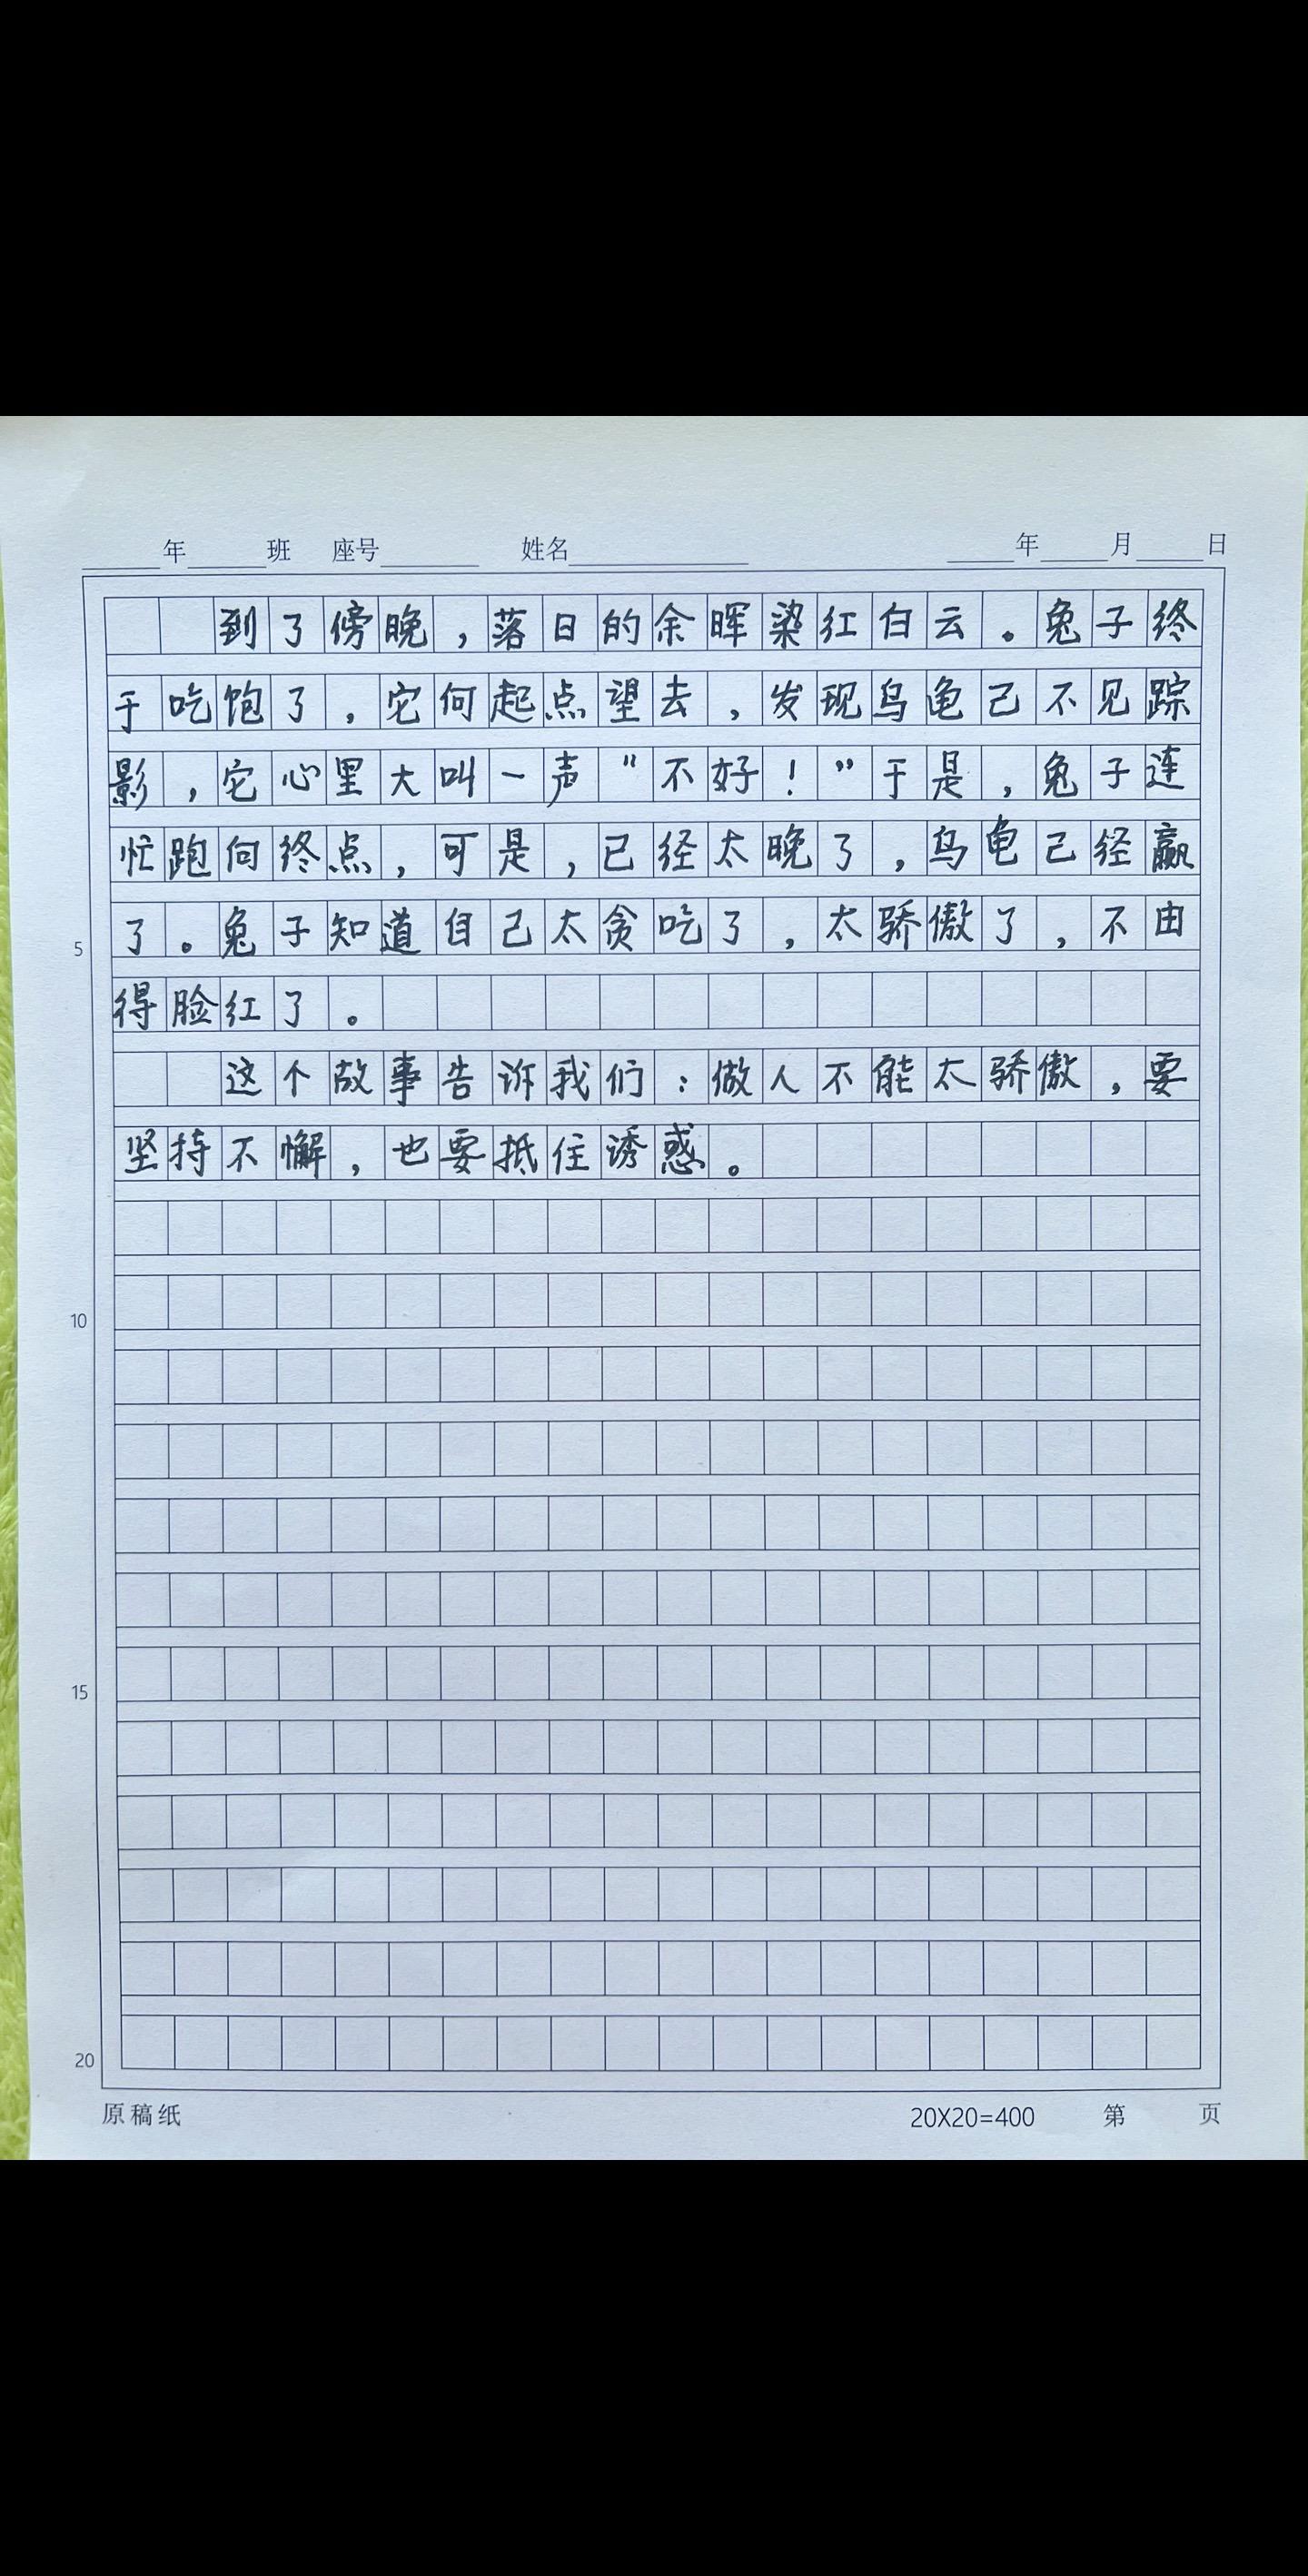 年 班 座号 姓名 年 月 日
到了傍晚，落日的余晖染红白云。兔子终
于吃饱了，它向起点望去，发现乌龟已不见踪
影，它心里大叫一声“不好！”于是，兔子连
忙跑向终点，可是，已经太晚了，乌龟已经赢
5 了。兔子知道自己太贪吃了，太骄傲了，不由
得脸红了。
这个故事告诉我们：做人不能太骄傲，要
坚持不懈，也要抵住诱惑。
10
15
20
原稿纸 20X20=400 第 页